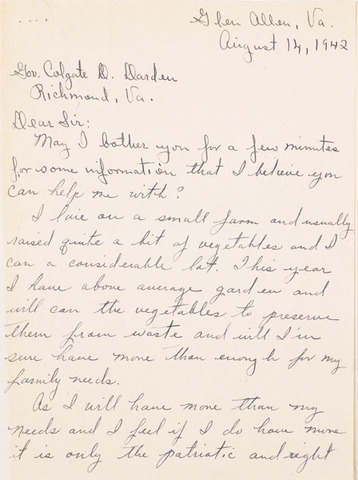 Glen Allen, Va.
August 14, 1942
Gov. Colgate D. Darden
Richmond, Va.
Dear Sir:
May I bother you for a few minutes
for some information that I believe you
can help me with?
I live on a small farm and usually
raised quite a bit of vegetables and I
can a considerable lot. This year
I have above average garden and
will can the vegetables to preserve
them from waste and will I'm
sure have more than enough for my
family needs.
As I will have more than my
needs and I feel if I do have more
it is only the patriotic and right